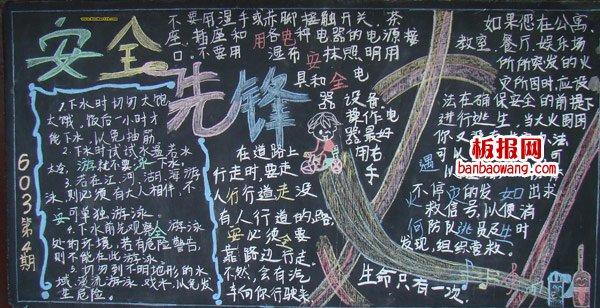 安全先锋
603第4期
1.下水时切勿太饱
太饿,饭后一小时才
能下水,以免抽筋
2.下水时试试水温,若水
太冷,就不要游泳
3.若在江、河、湖、海游
泳,则必须有大人相伴,不
可单独游泳
4.下水前先观察游泳
处的环境,若有危险警告,
则不能在此游泳
5.切勿到不明地形的水
域漂流游泳,戏水,以免发
生危险。
不要用湿手或赤脚接触开关、茶
座、插座和用各电种电器的电源接
口。不要用湿布安抹照明用
具和全电
器设备。
操作电
器最好
用右
手
在道路上
行走时,要走
人行行道走没
有人行道的路,
安必须要
靠路边行走。
不然,会有汽
车向你行驶来
如果您在公寓、
教室、餐厅、娱乐场
所所突发的火
灾所困时,应设
法在确保安全的前提下
进行逃生,当大火围困
你又
遇
不停的发出求
救信号,以便消
防队员及时
发现,组织营救。
生命只有一次
板报网
www.banbaowang.com